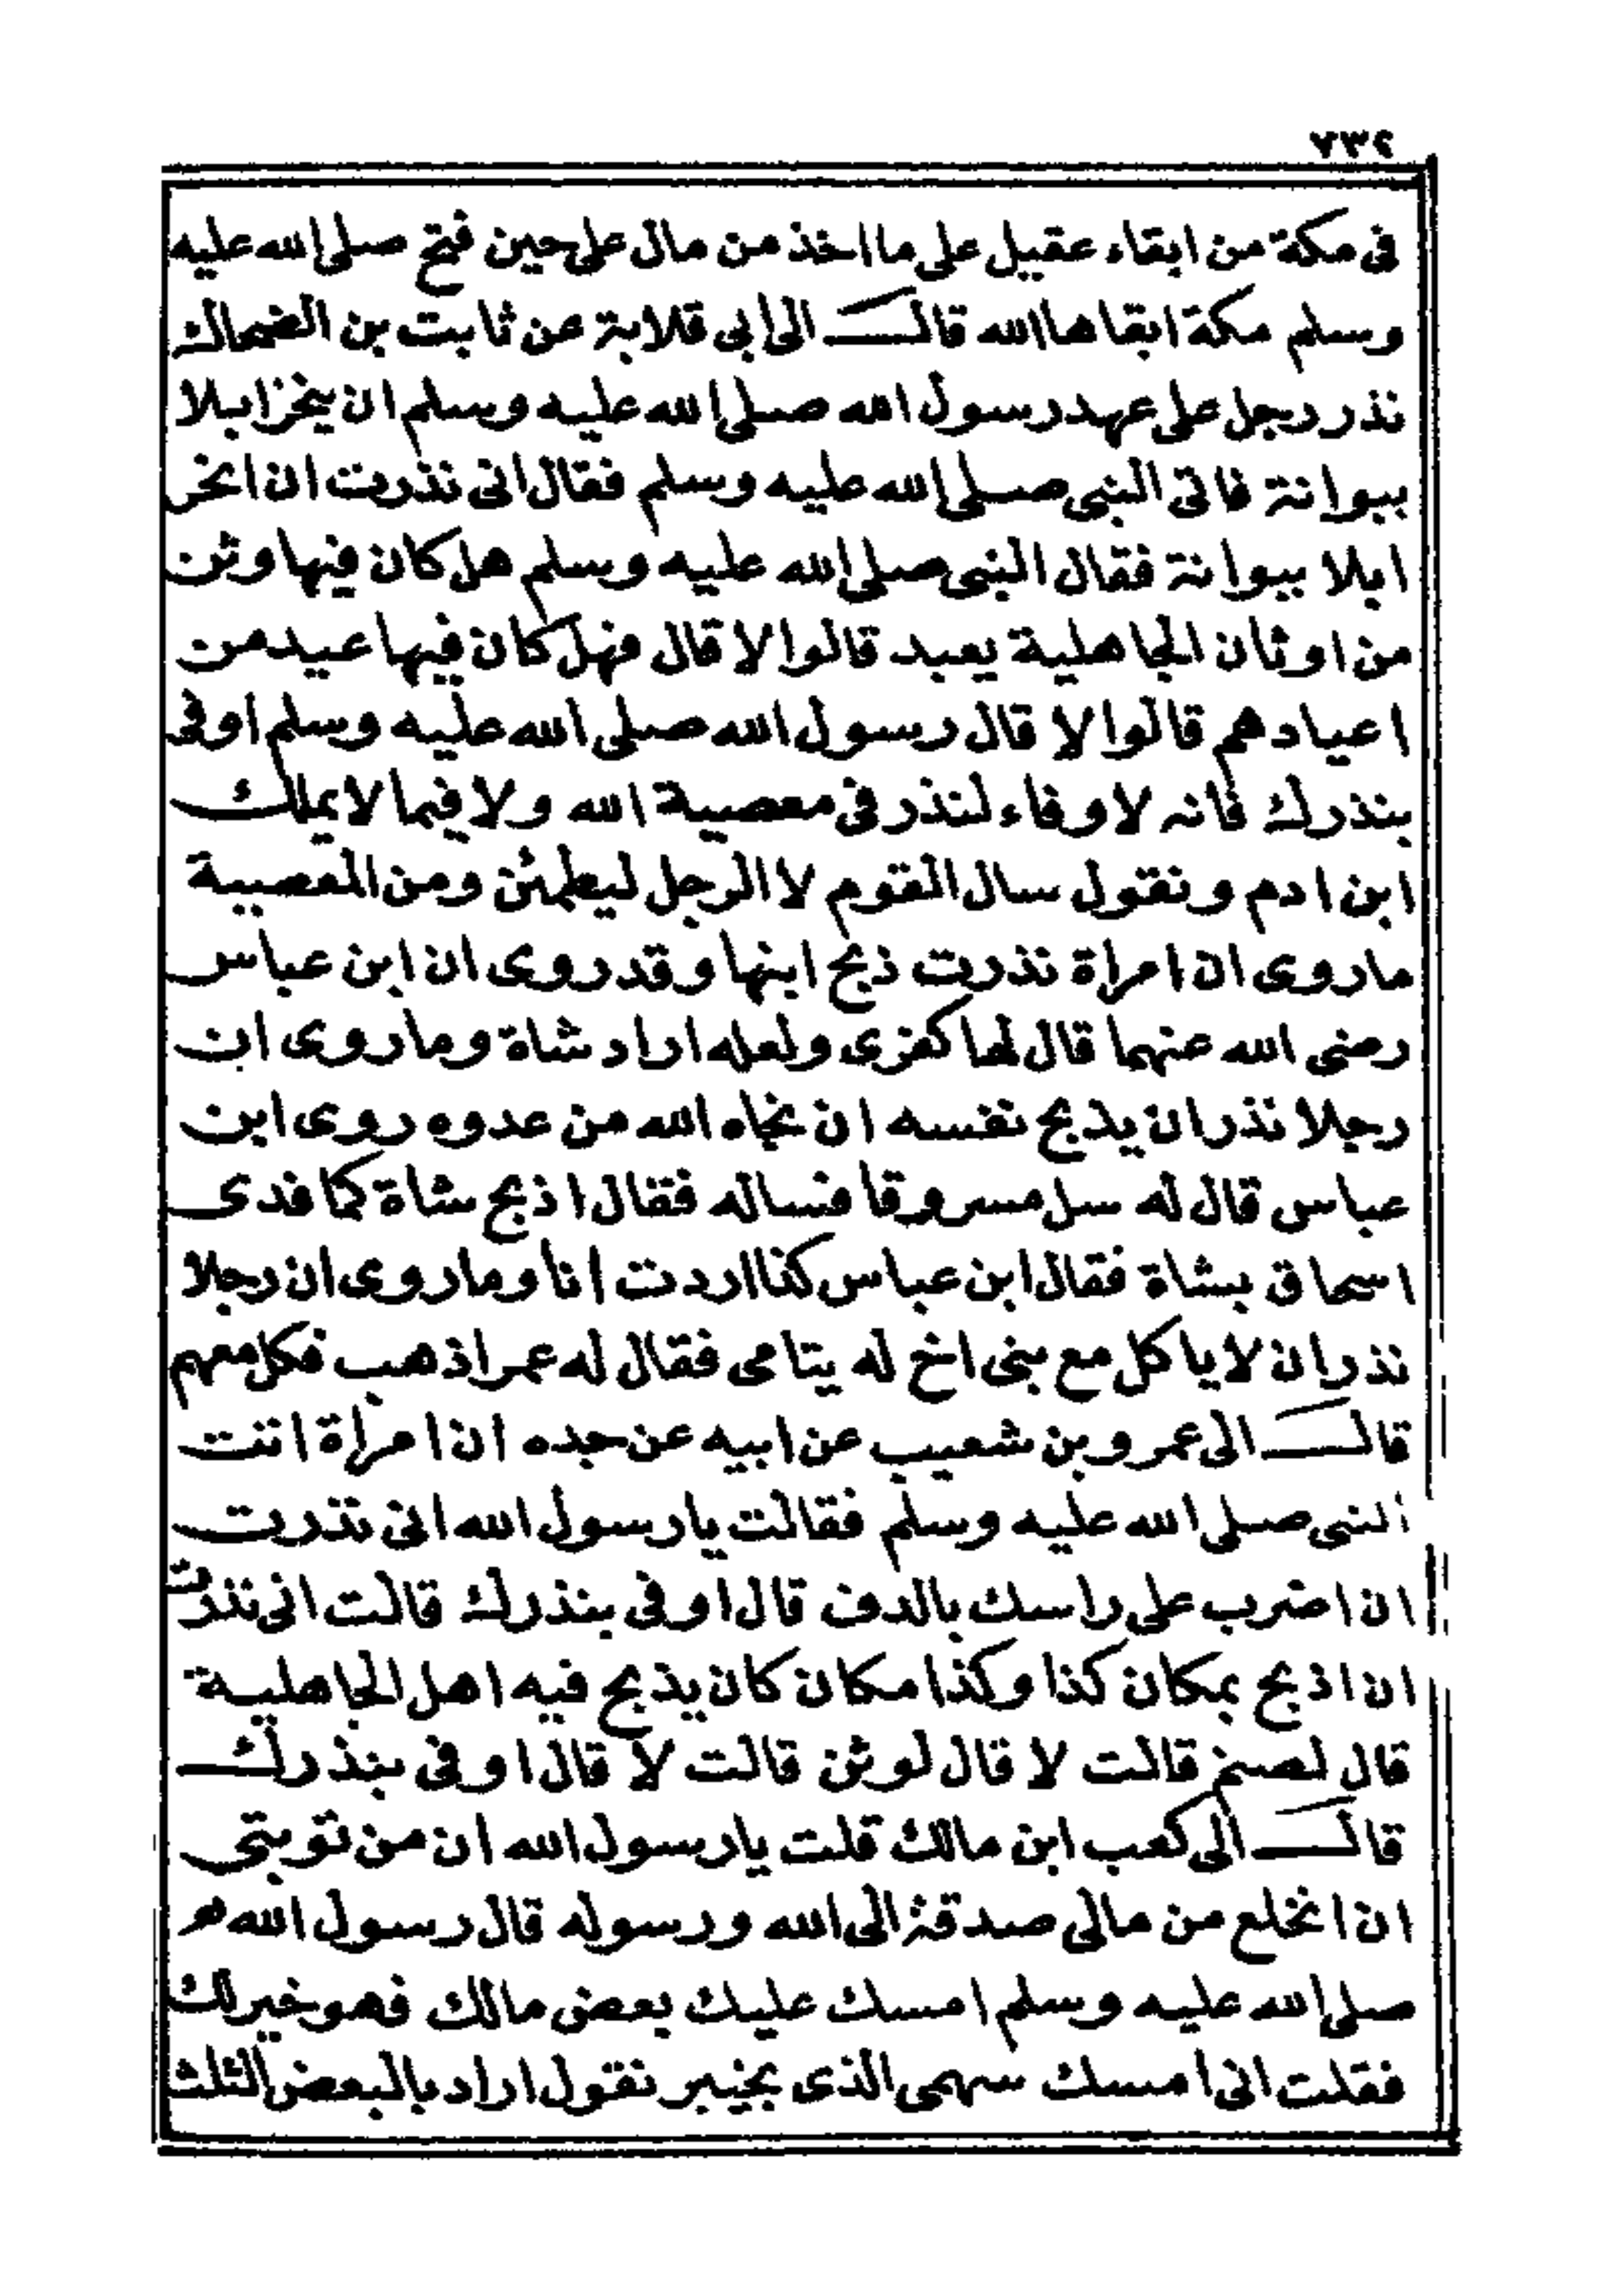 ٧٣٢
فى مكة من ابقاء عقيل على ما اخذ من مال على حين فتح صلى الله عليه
وسلم مكة ابقاها الله قال الى ابى قلابة عن ثابت بن الضحاك
نذر رجل على عهد رسول الله صلى الله عليه وسلم ان ينحر ابلا
ببوانة فاتى النبى صلى الله عليه وسلم فقال انى نذرت ان انحر
ابلا ببوانة فقال النبى صلى الله عليه وسلم هل كان فيها وثن
من اوثان الجاهلية يعبد قالوا لا قال فهل كان فيها عيد من
اعيادهم قالوا لا قال رسول الله صلى الله عليه وسلم اوفى
بنذرك فانه لا وفاء لنذر فى معصية الله ولا فيما لا يملك
ابن ادم ونقول سال القوم لا الرجل ليطمئن ومن المعصية
ماروى ان امراة نذرت ذبح ابنها وقد روى ان ابن عباس
رضى الله عنهما قال لها كفرى ولعله اراد شاة وماروى ان
رجلا نذر ان يذبح نفسه ان نجاه الله من عدوه روى ابن
عباس قال له سل مسروقا فساله فقال اذبح شاة كما فدى
اسحاق بشاة فقال ابن عباس كذا اردت انا وماروى ان رجلا
نذر ان لا ياكل مع بنى اخ له يتامى فقال له عمر اذهب فكل معهم
قال الى عمرو بن شعيب عن ابيه عن جده ان امراة اتت
النبى صلى الله عليه وسلم فقالت يا رسول الله انى نذرت
ان اضرب على راسك بالدف قال اوفى بنذرك قالت انى نذرت
ان اذبح بمكان كذا وكذا مكان كان يذبح فيه اهل الجاهلية
قال لصنم قالت لا قال لوثن قالت لا قال اوفى بنذرك
قال الى كعب ابن مالك قلت يا رسول الله ان من توبتى
ان انخلع من مالى صدقة الى الله ورسوله قال رسول الله
صلى الله عليه وسلم امسك عليك بعض مالك فهو خير لك
فقلت انى امسك سهمى الذى بخيبر نقول اراد بالبعض الثلث